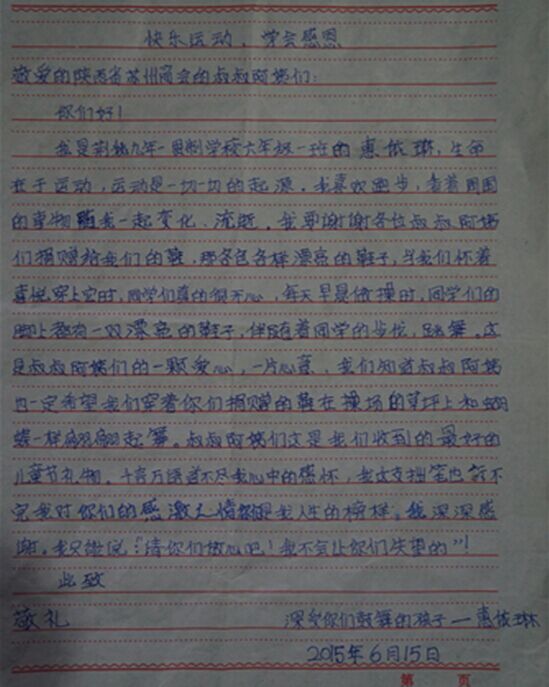 快乐运动，学会感恩
敬爱的陕西省苏州商会的叔叔阿姨们：
你们好！
我是荆姚九年一贯制学校六年级一班的惠依琳，生命
在于运动，运动是一切一切的起源。我喜欢跑步，看着周围
的事物随我一起变化、流逝。我要谢谢各位叔叔阿姨
们捐赠给我们的鞋，那各色各样漂亮的鞋子，当我们怀着
喜悦穿上它时，同学们真的很开心，每天早晨做操时，同学们的
脚上都有一双漂亮的鞋子，伴随着同学的步伐，跳舞。这
是叔叔阿姨们的一颗爱心，一片心意、我们知道叔叔阿姨
也一定希望我们穿着你们捐赠的鞋在操场的草坪上和蝴
蝶一样翩翩起舞。叔叔阿姨们这是我们收到的最好的
儿童节礼物。千言万语道不尽我心中的感怀，我这支拙笔也写不
完我对你们的感激之情你们是我人生的榜样。我深深感
谢。我只能说：“请你们放心吧！我不会让你们失望的”！
此致
敬礼 深受你们鼓舞的孩子—惠依琳
2015年6月15日
第 页